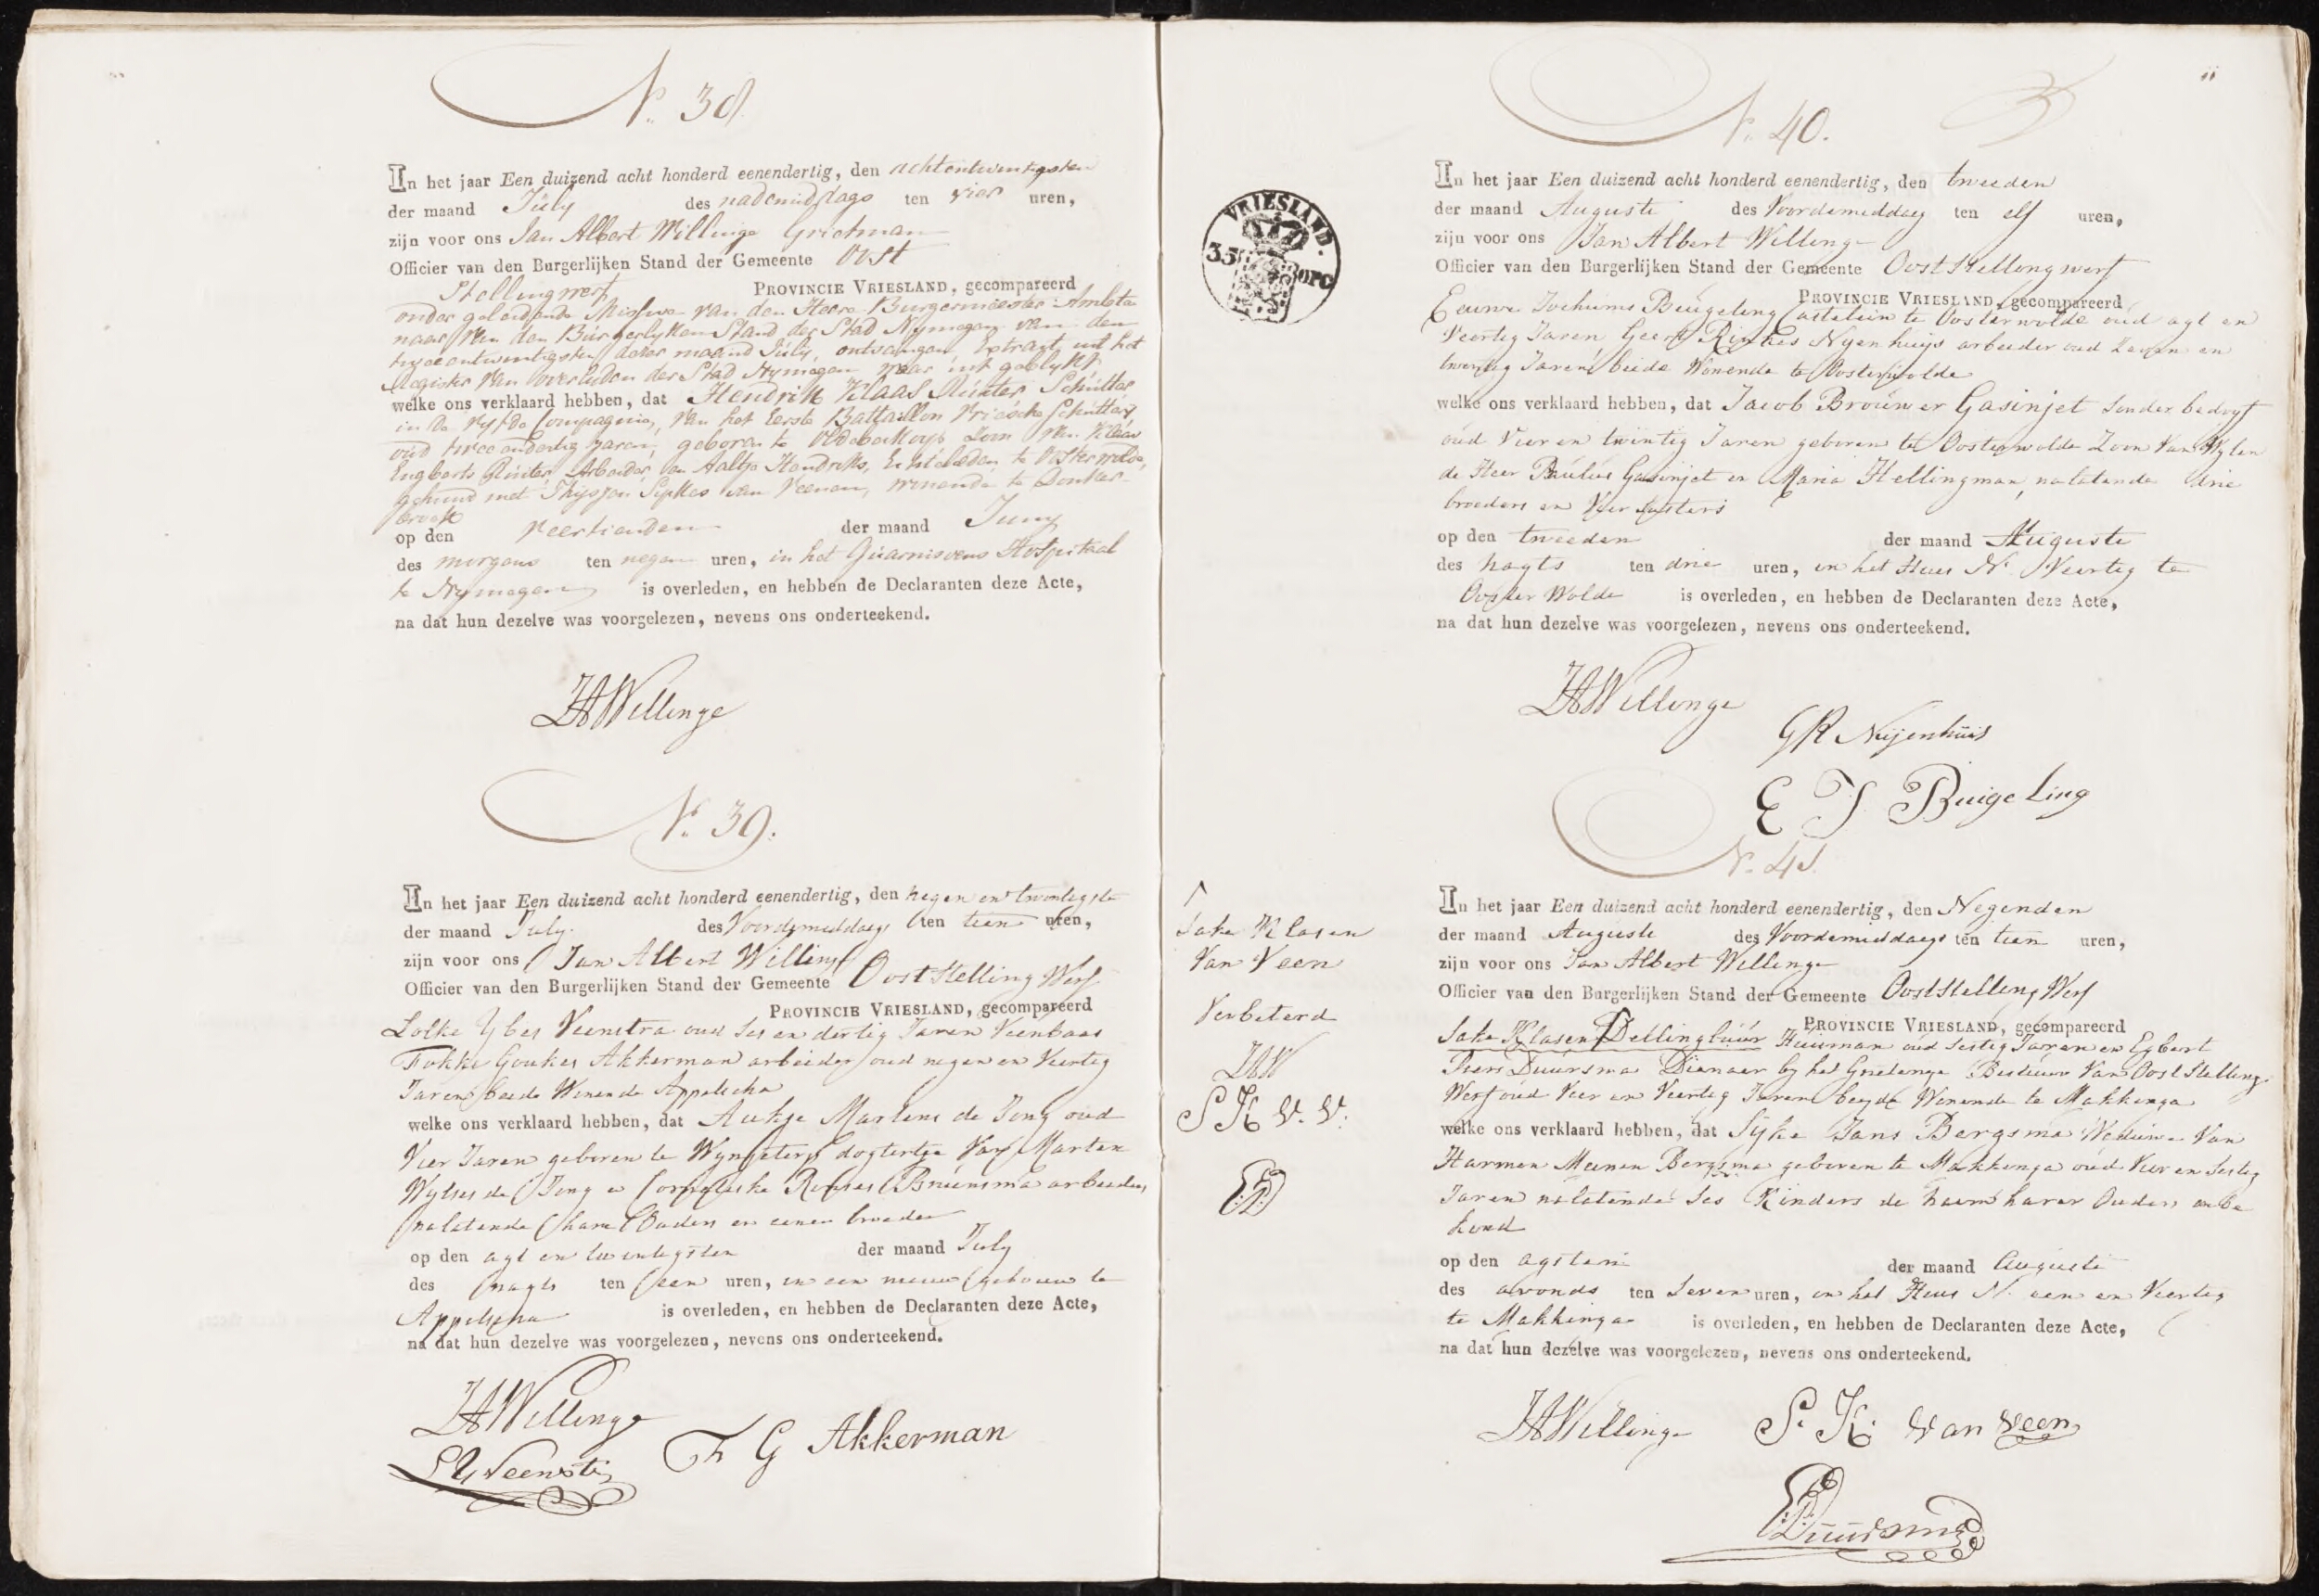 N. 38.
In het jaar Een duizend acht honderd eenendertig, den achtentwintigsten
der maand July des nademiddags ten vier uren,
zijn voor ons Jan Albert Willinge Grietman
Officier van den Burgerlijken Stand der Gemeente Oost
Stellingwerf PROVINCIE VRIESLAND, gecompareerd
onder geleidende Missive van den Heere Burgermeester Ambte
naar van den Burgerlyken Stand der Stad Nymegen van den
tweeentwintigsten dezer maand July, ontvangen Extract uit het
Register van overleden der Stad Nymegen waar uit geblykt
welke ons verklaard hebben, dat Hendrik Klaas Ruiter Schutter
in de vyfde Compagnie, van het Eerste Battaillon Vriesche Schuttery
oud twee endertig jaren, geboren te Oldeberkoop Zoon van Klaas
Engberts Ruiter, Arbeider, en Aaltje Hendriks, te Oosterwolde,
gehuwd met Thysjen Sipkes van Veenen, wonende te Donker
broek
op den veertienden der maand Juny
des morgens ten negen uren, in het Guarnisoens Hospitaal
te Nymegen is overleden, en hebben de Declaranten deze Acte,
na dat hun dezelve was voorgelezen, nevens ons onderteekend.
JAWillinge
N. 39.
In het jaar Een duizend acht honderd eenendertig, den negen en twentigste
der maand July des Voordemiddags ten tien uren,
zijn voor ons Jan Albert Willinge
Officier van den Burgerlijken Stand der Gemeente Ooststelling Werf
PROVINCIE VRIESLAND, gecompareerd
Lolke Ybes Veenstra oud ses en dertig Jaren Veenbaas
Fokke Goukes Akkerman arbeider oud negen en Veertig
Jaren beide Wonende Appelscha
welke ons verklaard hebben, dat Aukje Martens de Jong oud
Vier Jaren geboren te Wynjeterp dogtertje Van Marten
Wytses de Jong en Bruinsma arbeiders
nalatende hare Ouders en eenen broeder
op den agt en twentigsten der maand July
des nagts ten een uren, in een nieuw gebouw te
Appelscha is overleden, en hebben de Declaranten deze Acte,
na dat hun dezelve was voorgelezen, nevens ons onderteekend.
JAWillinge
LYVeenstra F G Akkerman
VRIESLAND.
N. 40.
In het jaar Een duizend acht honderd eenendertig, den tweeden
der maand Auguste des Voordemiddag ten elf uren,
zijn voor ons Jan Albert Willinge
Officier van den Burgerlijken Stand der Gemeente Ooststellingwerf
PROVINCIE VRIESLAND, gecompareerd
Eeuwe Jochums Beugeling Castelein te Oosterwolde oud agt en
Veertig Jaren Geert Rinkes Nyenhuys arbeider oud Zeven en
twentig Jaren beide Wonende te Oosterwolde
welke ons verklaard hebben, dat Jacob Brouwer Gasinjet sonder bedryf
oud Vier en twintig Jaren geboren te Oosterwolde Zoon Van Wylen
de Heer Paulus Gasinjet en Maria Hellingman, nalatende drie
broeders en Vier susters
op den tweeden der maand Auguste
des nagts ten drie uren, in het Huis N. Veertig te
Ooster Wolde is overleden, en hebben de Declaranten deze Acte,
na dat hun dezelve was voorgelezen, nevens ons onderteekend.
JAWillinge
GR Nijenhuis
E J Buigeling
N. 41.
Sake Klasen
Van Veen
Verbeterd
JAW
S K v. V.
In het jaar Een duizend acht honderd eenendertig, den Negenden
der maand Auguste des Voordemiddags ten tien uren,
zijn voor ons Jan Albert Willinge
Officier van den Burgerlijken Stand der Gemeente Ooststelling Werf
PROVINCIE VRIESLAND, gecompareerd
Sake Klasen Dellingbuur Huisman oud sestig Jaren en Egbert
Piers Duursma Dienaar by het Grietenye Bestuur Van Oost Stelling
Werf oud Vier en Veertig Jaren beyde Wonende te Makkinga
welke ons verklaard hebben, dat Syke Jans Bergsma Weduwe Van
Harmen Meenen Bergsma geboren te Makkinga oud Vier en sestig
Jaren nalatende ses Kinders de naem harer Ouders onbe
kend
op den agsten der maand Auguste
des avonds ten seven uren, in het Huis N. een en Veertig
te Makkinga is overleden, en hebben de Declaranten deze Acte,
na dat hun dezelve was voorgelezen, nevens ons onderteekend.
JAWillinge S. K. van Veen
EPDuursma